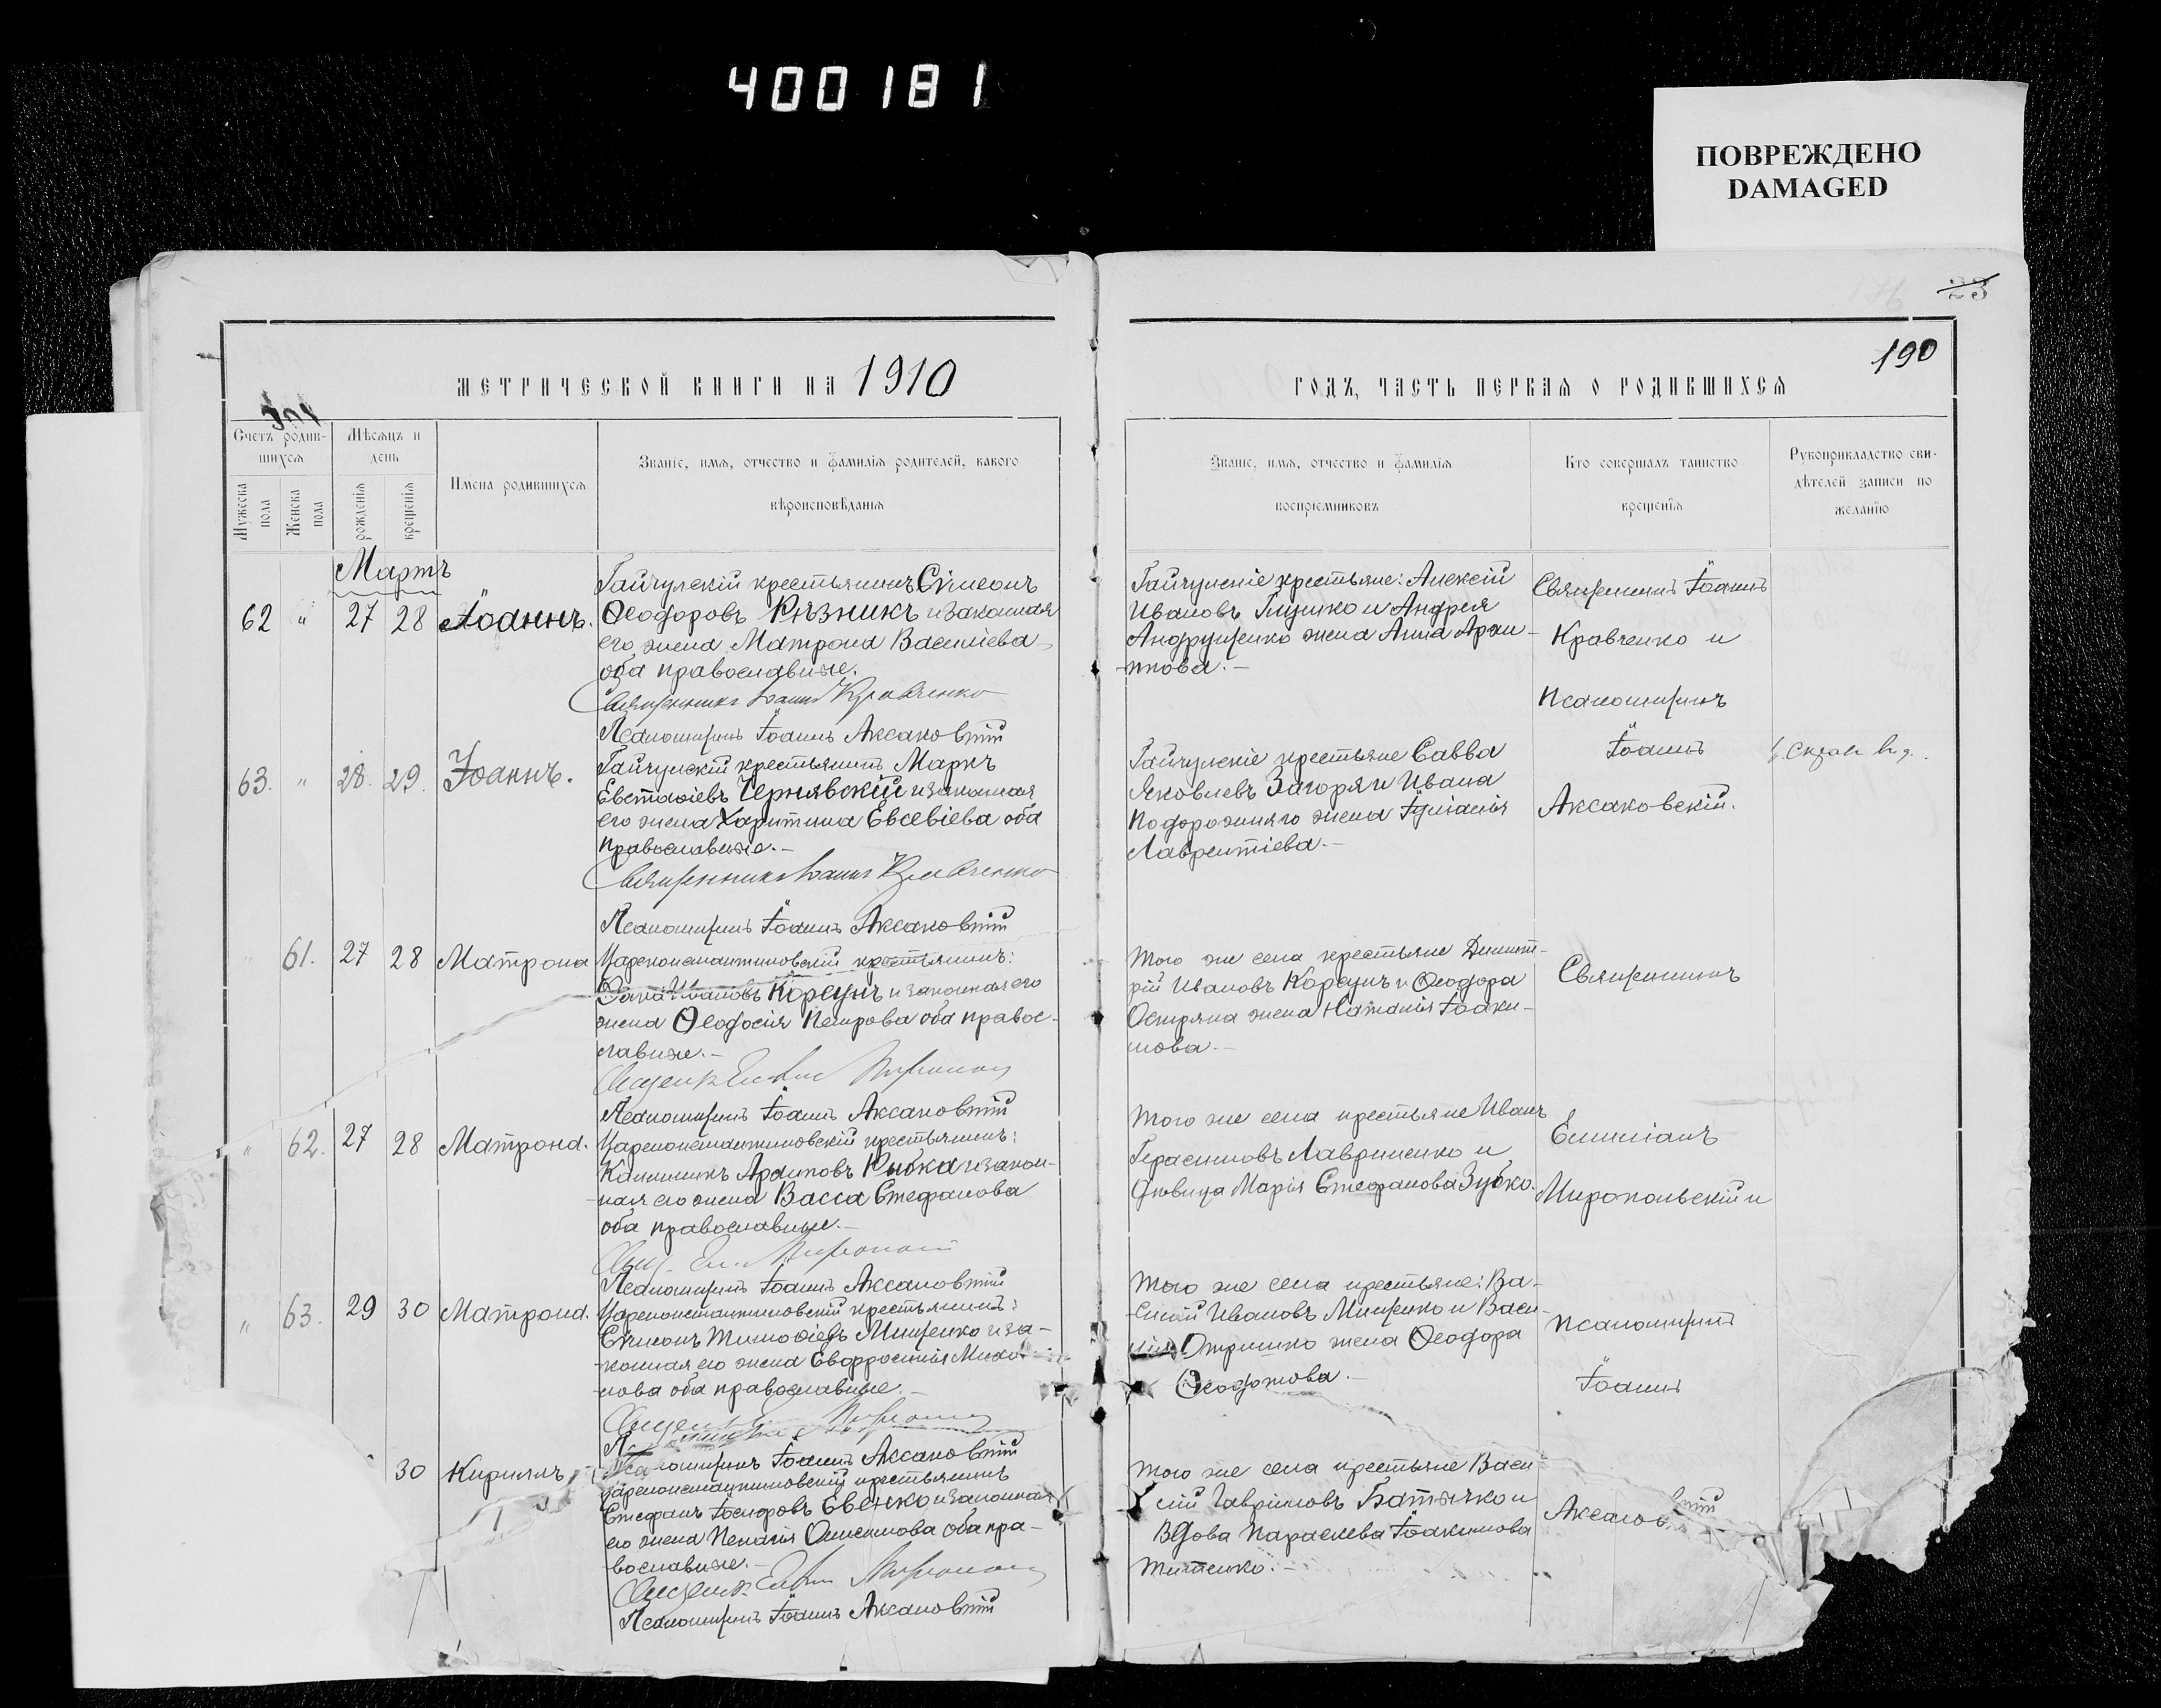 400181
ПОВРЕЖДЕНО
DAMAGED
23
190
МЕТРИЧЕСКОЙ КНИГИ НА 1910
ГОДЪ, ЧАСТЬ ПЕРВАЯ О РОДИВШИХСЯ
Счетъ родив-
шихся
Мѣсяцъ и
день
Мужеска
пола
Женска
пола
рожденія
крещенія
Имена родившихся
Званіе, имя, отчество и фамилія родителей, какого
вѣроисповѣданія
Званіе, имя, отчество и фамилія
воспріемниковъ
Кто совершалъ таинство
крещенія
Рукоприкладство сви-
дѣтелей записи по
желанію
Мартъ
62 " 27 28 Іоаннъ.
Гайчулскій крестьянинъ Сѵмеонъ
Ѳеодоровъ Рѣзникъ и законная
его жена Матрона Василіева
оба православные.
Священникъ Іоаннъ Кравченко
Псаломщикъ Іоаннъ Аксаковскій
Гайчулскіе крестьяне: Алексій
Ивановъ Глушко и Андрея
Андрущенко жена Анна Архи-
ппова.-
Священникъ Іоаннъ
Кравченко и
Псаломщикъ
Іоаннъ
Аксаковскій.
63. " 28. 29. Іоаннъ.
Гайчулскій крестьянинъ Маркъ
Евстаѳіевъ Чернявскій и законная
его жена Харитина Евсевіева оба
православные.-
Священникъ Іоаннъ Кравченко
Псаломщикъ Іоаннъ Аксаковскій
Гайчулскіе крестьяне Савва
Яковлевъ Загоряи Ивана
Подорожняго жена Іуліанія
Лаврентіева.-
" 61. 27 28 Матрона
Цареконстантиновскій крестьянинъ:
Ивановъ Корсунъ и законная его
жена Ѳеодосія Петрова оба правос-
лавные.-
Псаломщикъ Іоаннъ Аксаковскій
Того же села крестьяне Димит-
рій Ивановъ Корсунъ и Ѳеодора
Остряна жена Наталія Іоаки-
мова.-
Священникъ
Емиліанъ
Миропольскій и
Псаломщикъ
Іоаннъ
Аксаковскій
" 62. 27 28 Матрона.
Цареконстантиновскій крестьянинъ:
Каллиникъ Архиповъ Рыбка и закон-
ная его жена Васса Стефанова
оба православные.-
Псаломщикъ Іоаннъ Аксаковскій
Того же села крестьяне Иванъ
Герасимовъ Лавриненко и
дѣвица Марія Стефанова Зубко.
" 63. 29 30 Матрона.
Цареконстантиновскій крестьянинъ:
Сѵмеонъ Тимоѳіевъ Мищенко и за-
конная его жена Евфросинія
нова оба православные.-
Псаломщикъ Іоаннъ Аксаковскій
Того же села крестьяне: Ва-
силій Ивановъ Мищенко и Васи-
лія Отришко жена Ѳеодора
Ѳеодотова.-
30 Кириллъ
Цареконстантиновскій крестьянинъ
Стефанъ Іосифовъ Евенко и законная
его жена Пелагія оба пра-
вославные.-
Псаломщикъ Іоаннъ Аксаковскій
Того же села крестьяне Васи-
лій Гавриловъ Батечко и
Вдова Параскева Іоакимова
Титенко.-